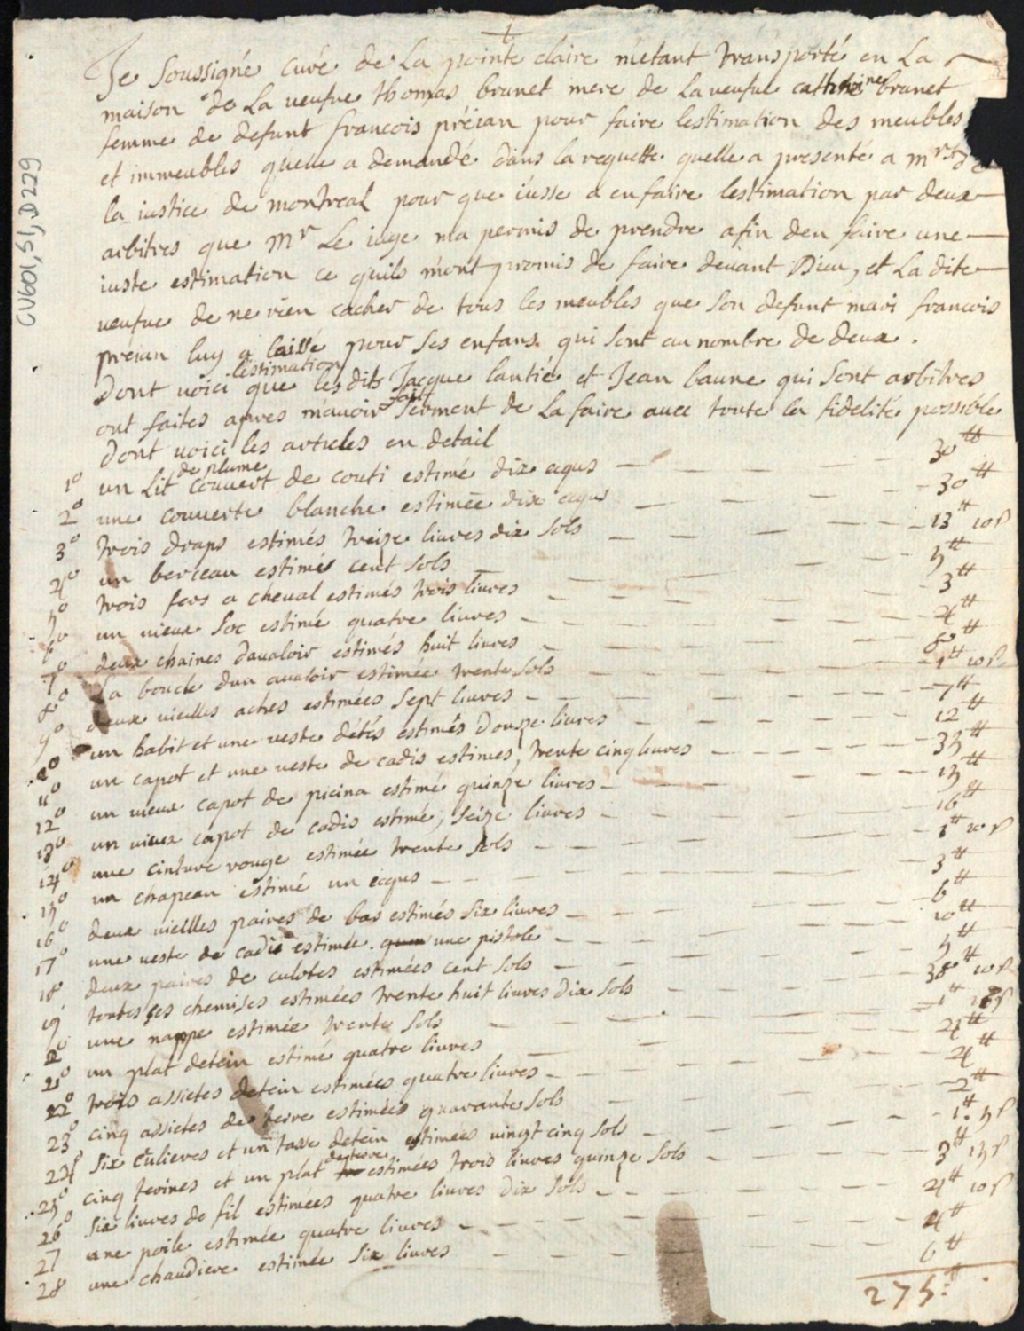 Je soussigné curé de la pointe claire m'etant transporté en la
maison de la veufve thomas brunet mere de la veufve cathrine brunet
femme de defunt francois preian pour faire lestimation des meubles
et immeubles quelle a demandé dans la requette quelle a presenté a mrs de
la iustice de montreal pour que i'usse a en faire lestimation par deux
arbitres que Mr Le iuge ma permis de prendre afin den faire une
iuste estimation ce quils m'ont promis de faire devant Dieu, et La dite
veufve de ne rien cacher de tous les meubles que son defunt mari francois
preian luy a laissé pour ses enfans qui sont au nombre de deux.
Dont voici lestimation que lesdits Jacque lantié et Jean baune qui sont arbitres
ont faites apres mavoir fait serment de La faire avec toute la fidelité possible
Dont voici les articles en detail
1° un Lit de plume couvert de couti estimé dix equs 30#
2° une couverte blanche estimée dix equs 30#
3° trois draps estimés treize livres dix sols 13# 10s
4° un berceau estimé cent sols 5#
5° trois fers a cheval estimés trois livres 3#
6° un vieux soc estimé quatre livres 4#
7° deux chaines davaloir estimés huit livres 8#
8° La boucle dun avaloir estimée trente sols 1# 10s
9° deux vieilles aches estimées sept livres 7#
10° un habit et une veste détés estimés douze livres 12#
11° un capot et une veste de cadis estimés, trente cinq livres 35#
12° un vieux capot de picina estimé quinze livres 15#
13° un vieux capot de cadis estimé, seize livres 16#
14° une cinture rouge estimée trente sols 1# 10s
15° un chapeau estimé un equs 3#
16° deux viellles paires de bas estimés six livres 6#
17° une veste de cadis estimée une pistole 10#
18° deux paires de culotes estimées cent sols 5#
19° toutes ses chemises estimées trente huit livres dix sols 38# 10s
20° une nappe estimée trente sols 1# 10s
21° un plat detein estimé quatre livres 4#
22° trois assietes detein estimées quatre livres 4#
23° cinq assietes de terre estimées quarante sols 2#
24° six culieres et un tasse detein estimées vingt cinq sols 1# 5s
25° cinq terines et un plat de terre estimées trois livres quinze sols 3# 15s
26° six livres de fil estimées quatre livres dix sols 4# 10s
27 une poile estimée quatre livres 4#
28 une chaudiere estimée six livres 6#
275#